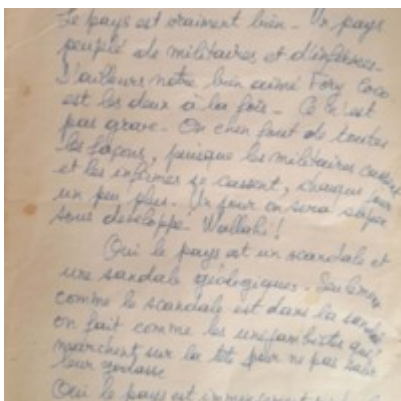 Le pays est vraiment bien. Un pays
peuplé de militaires et d'infirmes.
D'ailleurs notre bien aimé Fory Coco
est les deux à la fois. Ce n'est
pas grave. On s'en fout de toutes
les façons, puisque les militaires cassent
et les infirmes se cassent, chaque jour
un peu plus. Un jour on sera super
sous développé. Wallahi!
Oui le pays est un scandale et
une sandale géologiques. Seulement
comme le scandale est dans la sandale
on fait comme les unijambistes qui
marchent sur la tête pour ne pas salir
leur godasse
Oui le pays est